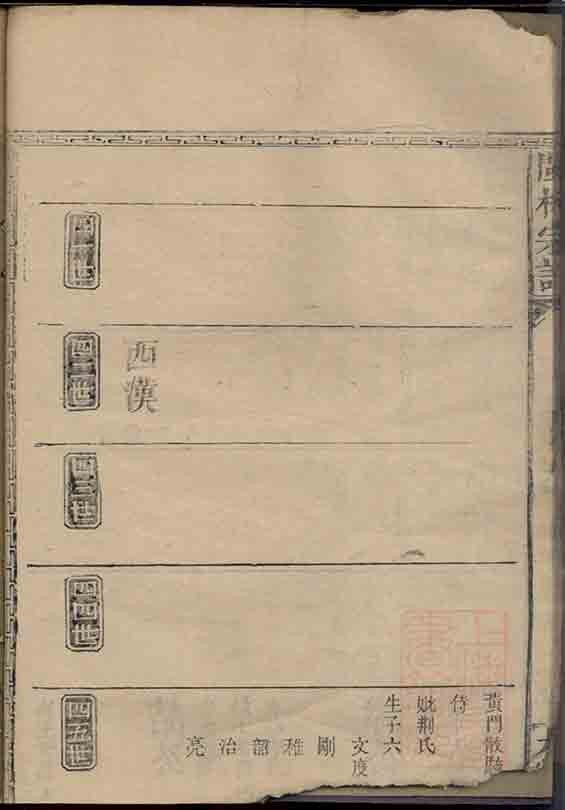 宗譜
四二世
西漢
四三世
四四世
黃門散騎
侍
妣荆氏
生子六
文度
剛
稚
韶
治
亮
四五世